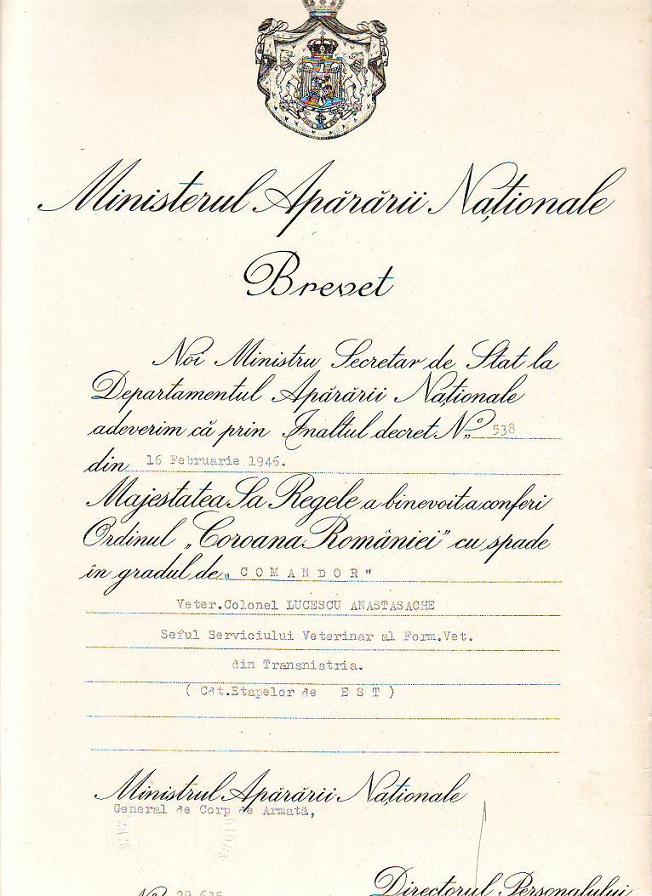 Ministerul Apărării Naționale
Brevet
Noi Ministru Secretar de Stat la
Departamentul Apărării Naționale
adeverim că prin Inaltul decret No. 538
din 16 Februarie 1946.
Majestatea Sa Regele a binevoit a conferi
Ordinul „Coroana României" cu spade
în gradul de „COMANDOR"
Veter.Colonel LUCESCU ANASTASACHE
Seful Serviciului Veterinar al Form.Vet.
din Transnistria.
( Cdt.Etapelor de E S T )
Ministrul Apărării Naționale
General de Corp de Armată,
Directorul Personalului
No. 29.635